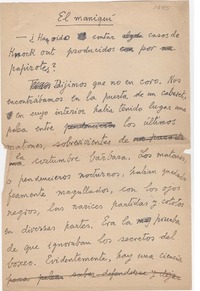 1945
El maniquí
— ¿Han oído contar casos de
Knock out producidos por
papirotes?
Dijimos que no en coro. Nos
encontrábamos en la puerta de un cabaret,
en cuyo interior había tenido lugar una
pelea entre los últimos
matones, sobrevivientes de
la costumbre bárbara. Los matones,
o pendencieros nocturnos, habían quedado
feamente magullados, con los ojos
negros, las narices partidas y cototos
en diversas partes. Era la prueba
de que ignoraban los secretos del
boxeo. Evidentemente, hay una ciencia
para saber defenderse y